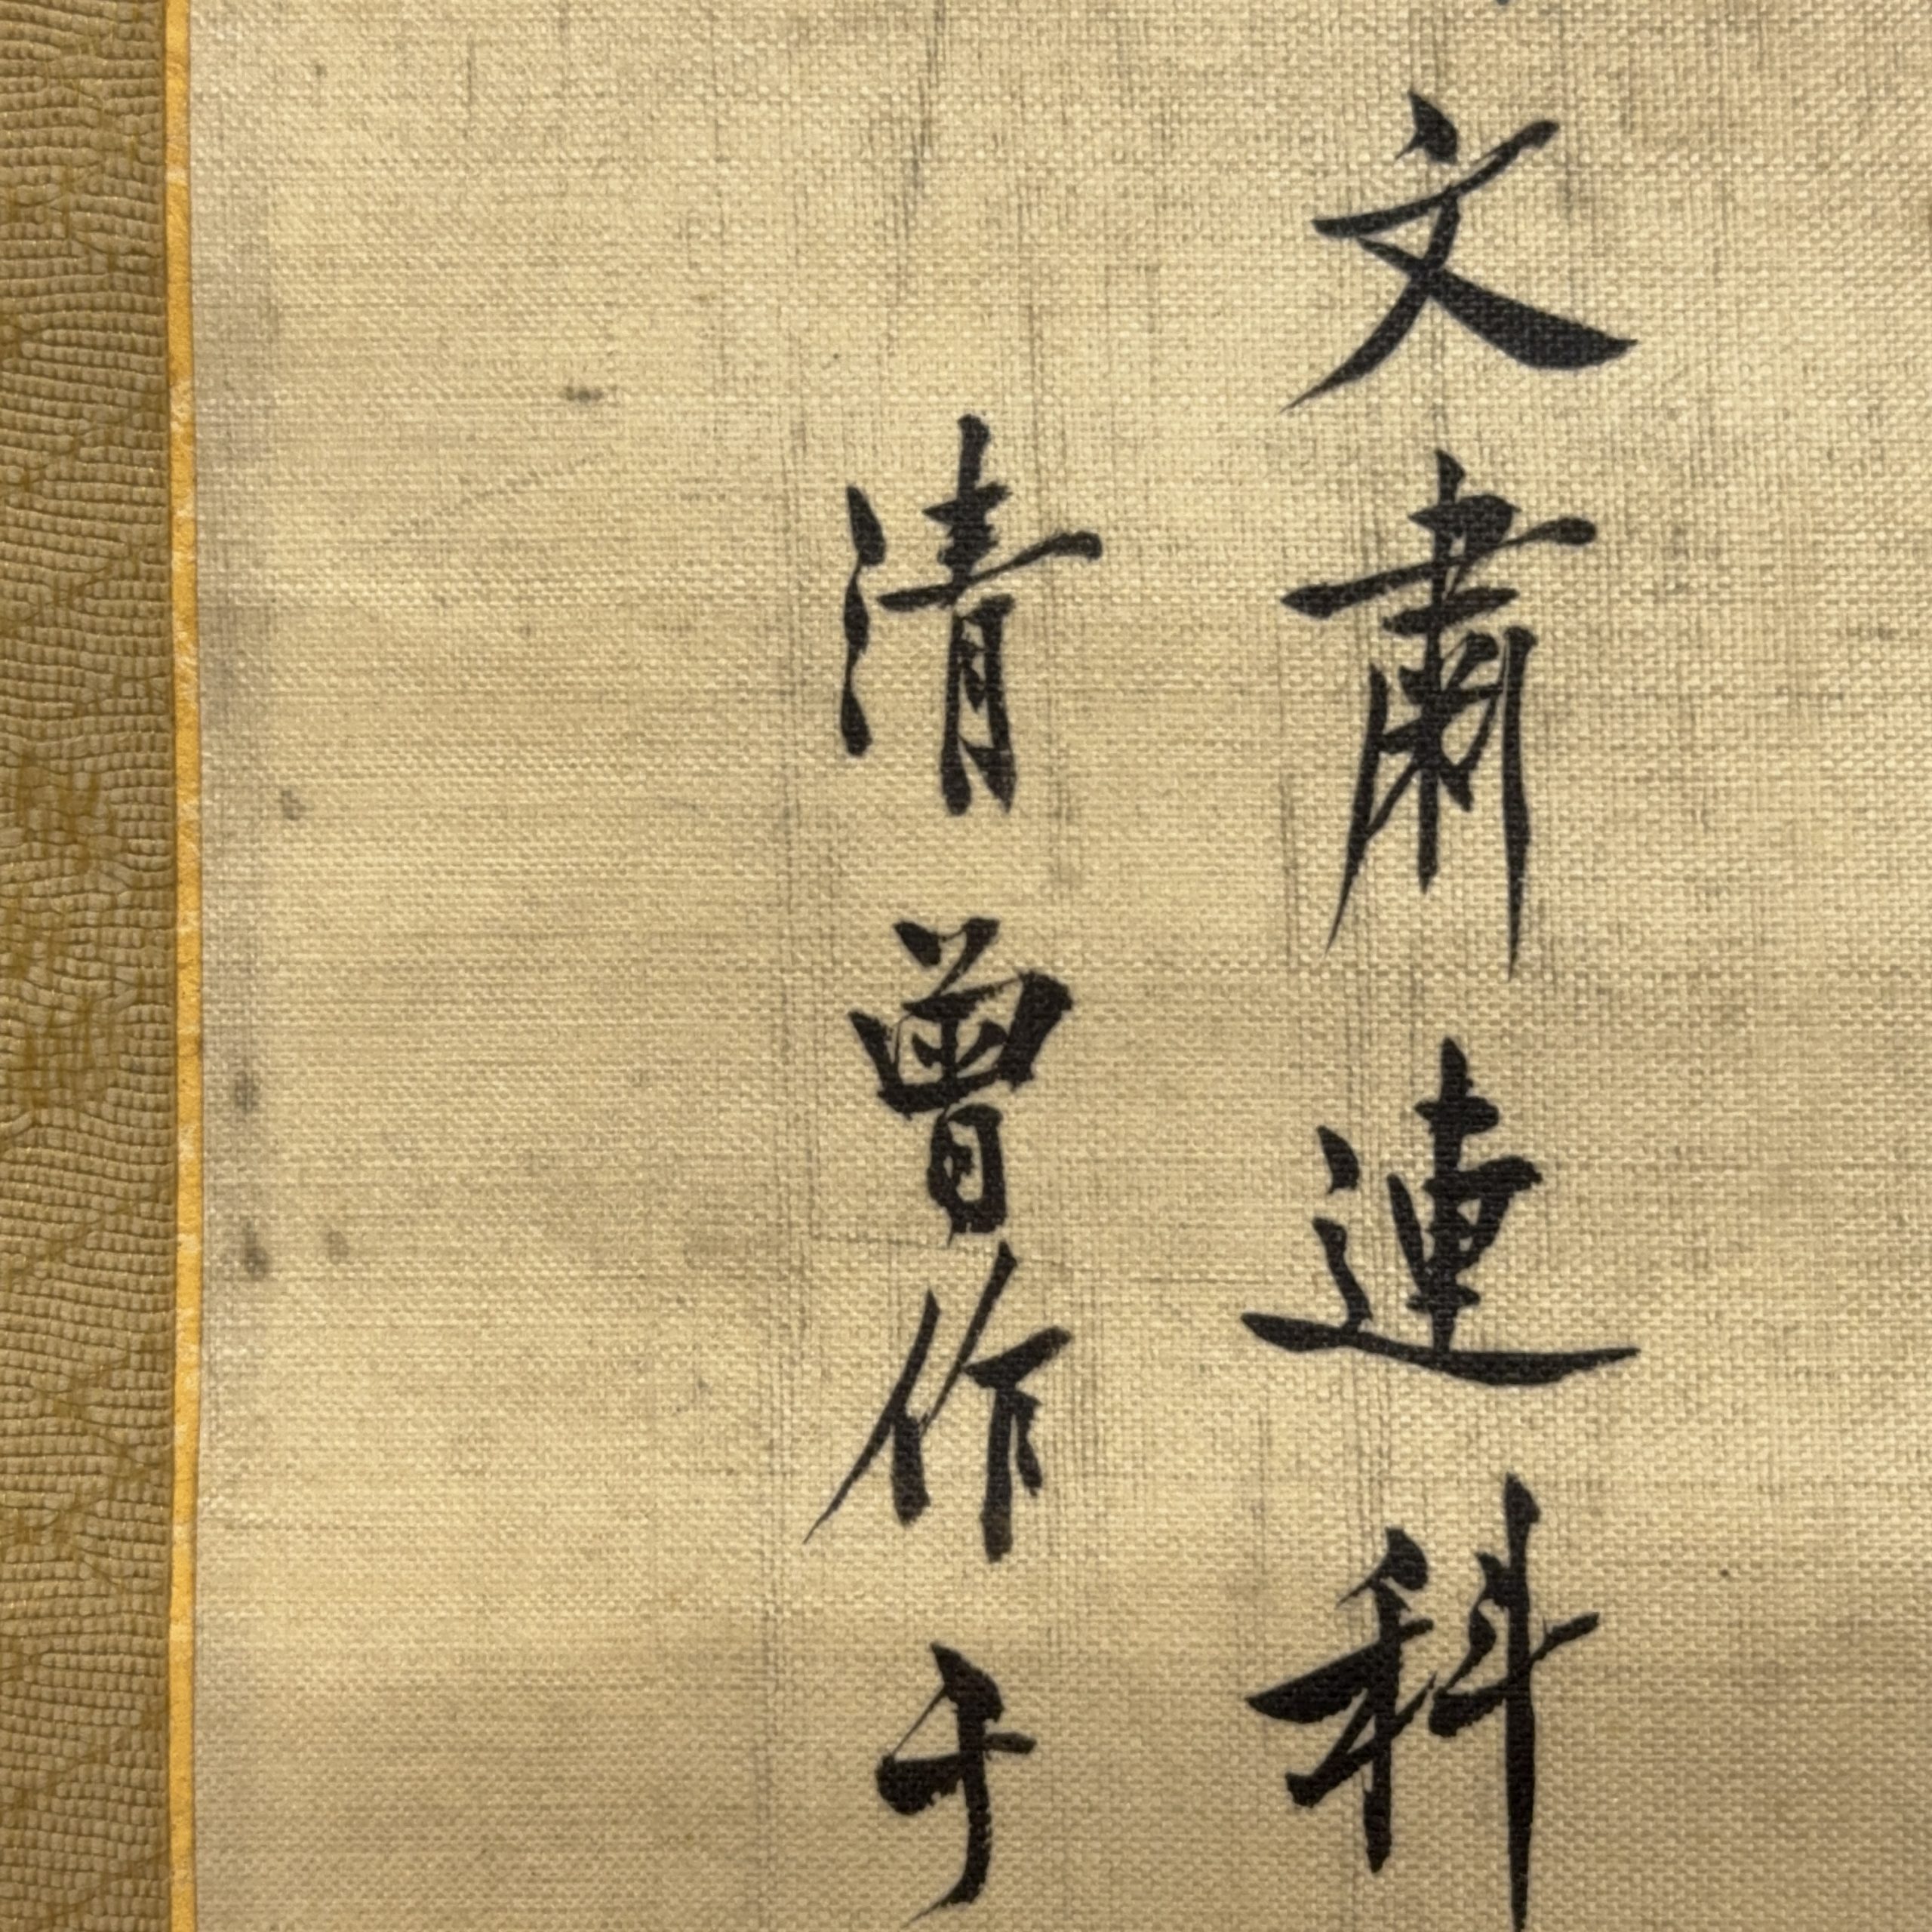 文肅連科
清曾作于